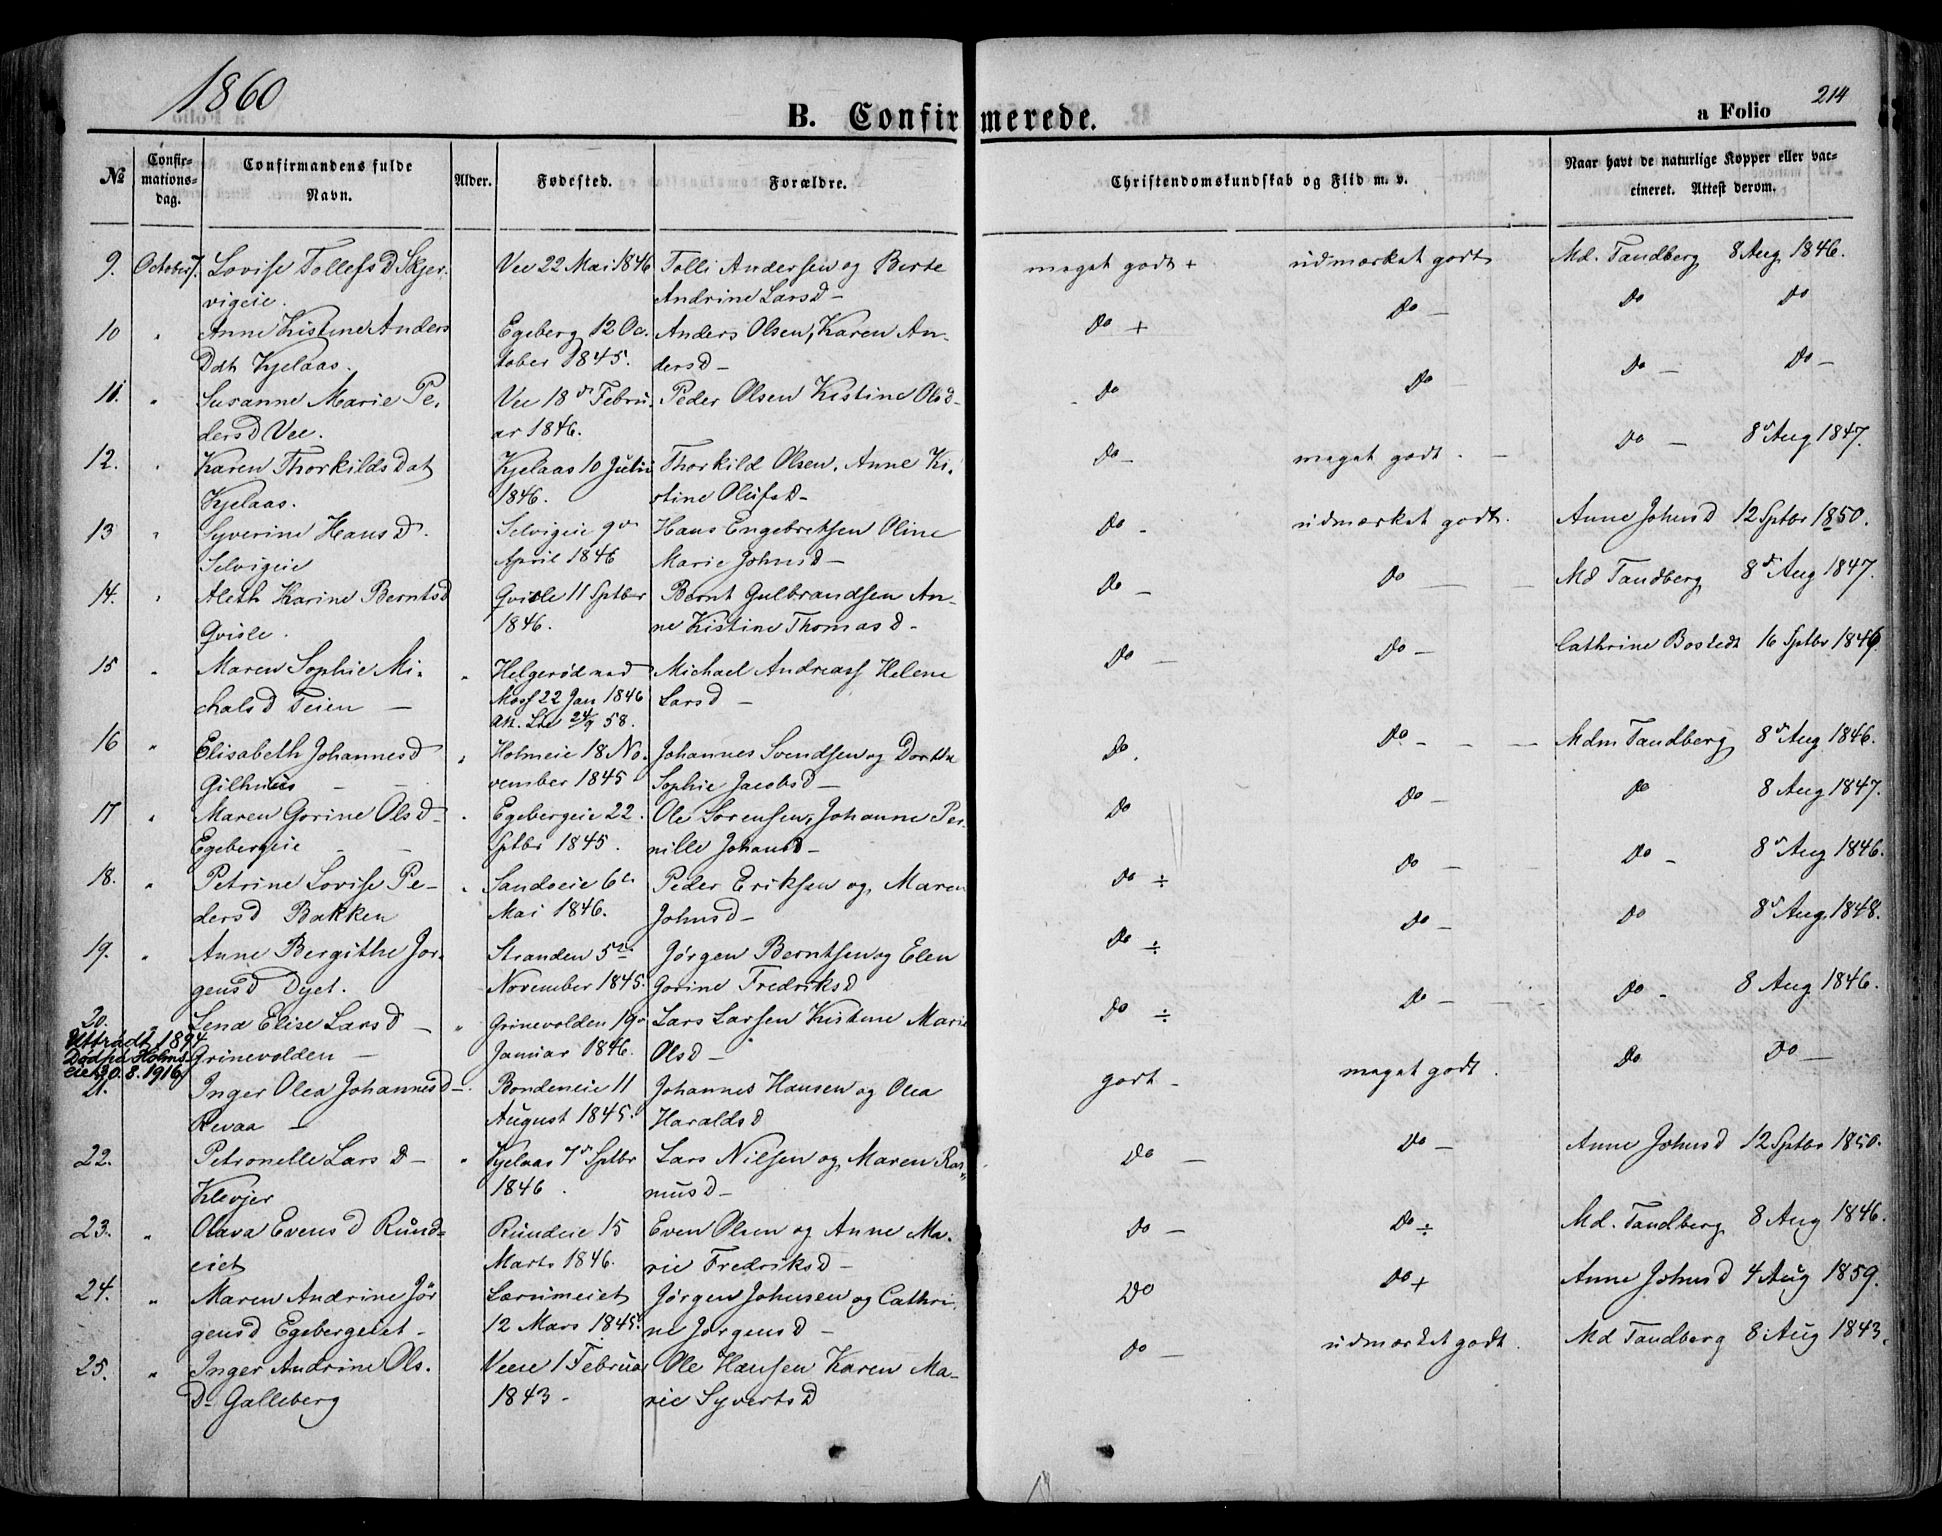 1860
214
B. Confirmerede.
a Folio
№
Confir-
mations-
dag.
Confirmandens fulde
Navn.
Alder.
Fødested.
Forældre.
Christendomskundskab og Flid m. v.
Naar havt de naturlige Kopper eller vac-
cineret. Attest derom.
9. October 7. Lovise Tollefs D Skjer- Vee 22 Mai 1846 Tolli Andersen og Berte meget godt + udmærket godt Md. Tandberg 8 Aug 1846.
vigeie. Andrine Larsd –
10 " Anne Kistine Anders Egeberg 12 Oc. Anders Olsen, Karen An- Do + Do – Do Do
Dat Kjelaas. tober 1845. dersd –
11. " Susanne Marie Pe- Vee 18de Febru. Peder Olsen Kistine Ols D – Do Do – Do – Do –
dersd Vee. ar 1846.
12. " Karen Thorkilds Dat Kjelaas 10 Julii Thorkild Olsen, Anne Ki- Do – meget godt. – Do – 8de Aug 1847.
Kjelaas. 1846. stine Olufsd –
13 " Syverine Hans D. Selvigeie 9de Hans Engebretsen Oline Do – udmærket godt. Anne Johnsd 12 Sptbr 1850.
Selvigeie April 1846 Marie Johnsd –
14. " Aleth Karine Berntsd Qvisle 11 Sptbr Bernt Gulbrandsen An- Do – Do – Md Tandberg 8de Aug 1847.
Qvisle. 1846. ne Kistine Thomasd –
15 " Maren Sophie Mi- " Helgerød ved Michael Andreass Helene Do – Do – Cathrine Bostedt 16 Sptbr 1846
chalsd Teien – Moss 22 Jan 1846 Larsd –
24/9 58.
16 " Elisabeth Johannesd " Holmeie 18 No- Johannes Svendsen og Dorthe Do. Do – Mdm Tandberg 8de Aug 1846.
Gilhuus – vember 1845 Sophie Jacobsd –
17 " Maren Gorine Olsd – " Egebergeie 22. Ole Sørensen, Johanne Per- Do Do – Do 8 Aug 1847.
Egebergeie – Sptbr 1845. nille Johansd –
18. " Petrine Lovise Pe- " Sandoeie 6te Peder Eriksen og Maren Do ÷ Do – Do – 8de Aug 1846.
dersd Bakken Mai 1846. Johnsd –
19. " Anne Bergithe Jør- Stranden 5te Jørgen Berntsen og Elen Do ÷ Do – Do 8de Aug 1848.
gensd Dyet. November 1845. Gorine Fredriksd
20. Lena Elise Larsd – " Grinevolden 19de Lars Larsen Kistine Marie Do ÷ Do – Do – 8 Aug 1846.
Uttraadt 1894
Død paa Holms-
eiet 30.8.1916
Grinevolden – Januar 1846. Olsd –
21. Inger Olea Johannesd – Bondeneie 11 Johannes Hansen og Olea godt – meget godt. Do Do –
Revaa – August 1845. Haraldsd
22. Petronelle Lars D – " Kjelaas 7de Sptbr Lars Nilsen og Maren Ras- Do – Do – Anne Johnsd 12 Sptbr 1850.
Klevjer 1846. musd –
23. " Olava Evensd Rund- Rundeie 15 Even Olsen og Anne Ma- Do – Do ÷ Md. Tandberg 8 Aug 1846.
eiet Marts 1846. rie Fredriksd –
24. " Maren Andrine Jør Lærumeiet Jørgen Johnsen og Cathri- Do Do + Anne Johnsd 4 Aug 1859.
gensd Egebergeiet – 12 Mars 1845. ne Jørgensd –
25. " Inger Andrine Ols- Veeie 1 Februar Ole Hansen Karen Ma- Do – udmærket godt. Md Tandberg 8 Aug 1843.
D – Galleberg 1843 – rie Syvertsd